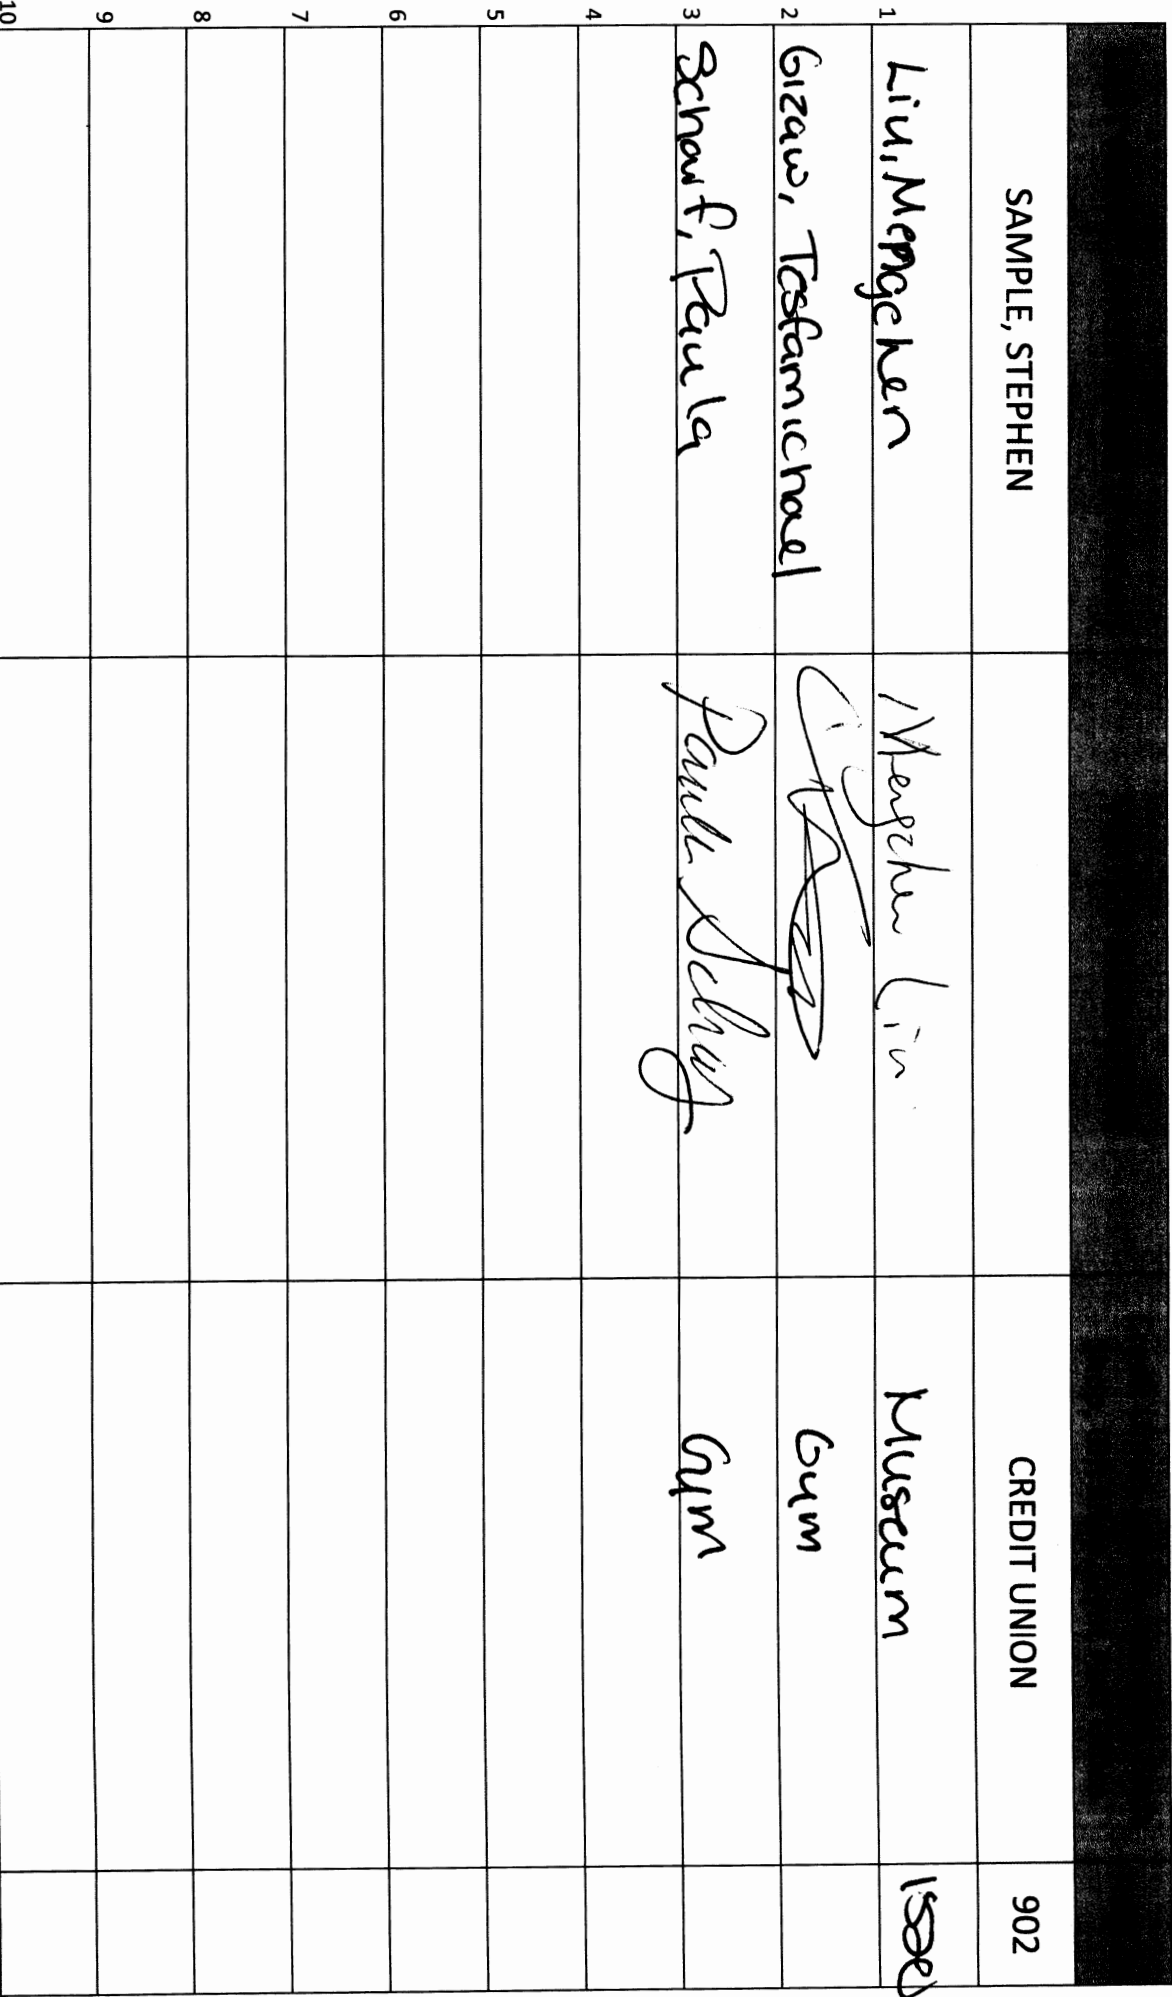 SAMPLE, STEPHEN CREDIT UNION 902
1 Liu, Mengchen Mengchen Liu Museum
2 Gizaw, Tesfamichael Gym
3 Scharf, Paula Paula Scharf Gym
4
5
6
7
8
9
10